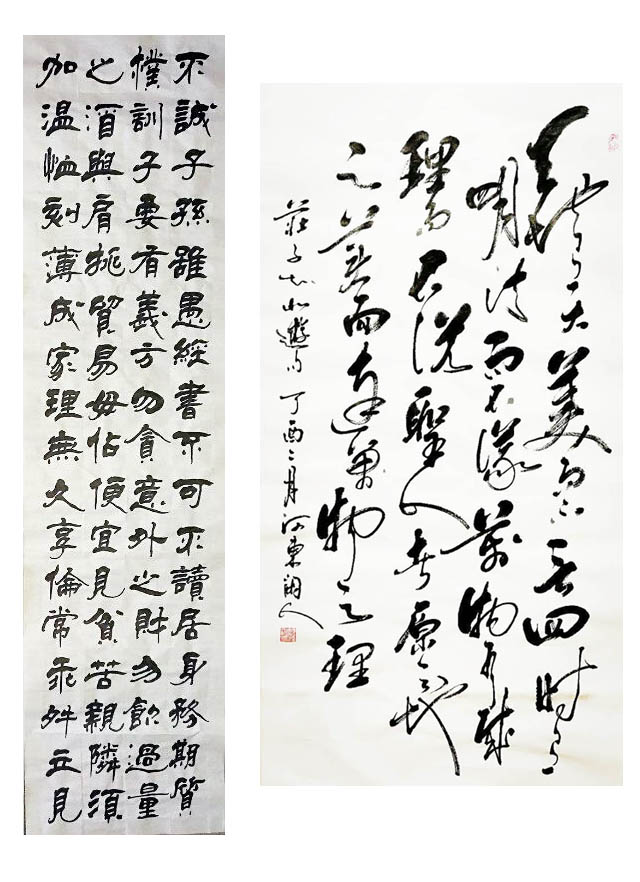 不誠子孫雖愚經書不可不讀居身務期質
樸訓子要有義方勿貪意外之財勿飲過量
之酒與肩挑貿易毋佔便宜見貧苦親隣須
加温恤刻薄成家理無久享倫常乖舛立見
天地有大美而不言四時有
明法而不議萬物有成
理而不說聖人者原天地
之美而達萬物之理
莊子知北遊句 丁酉二月河東閑人